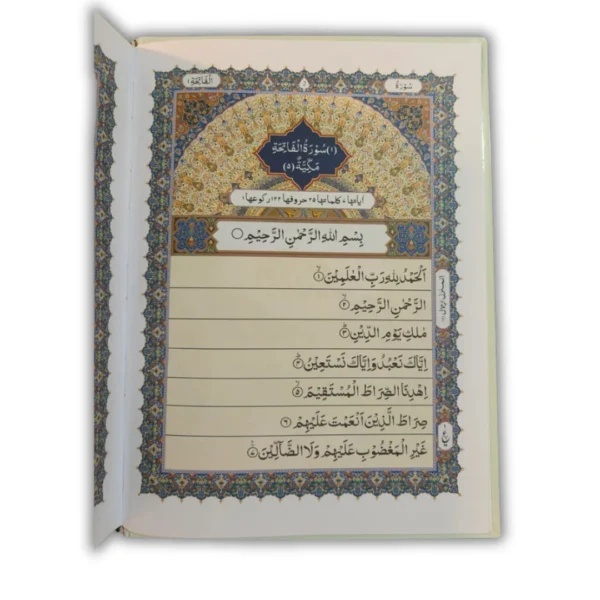 سُوْرَةُ
الْفَاتِحَة ١
(١) سُوْرَةُ الْفَاتِحَةِ
مَكِّيَّةٌ (٥)
اٰیاتها ٧ کلماتها ٢٥ حروفها ١٢٣ رکوعها ١
بِسْمِ اللهِ الرَّحْمٰنِ الرَّحِيْمِ ۝
اَلْحَمْدُ لِلّٰهِ رَبِّ الْعٰلَمِيْنَ ۙ﴿١﴾
الرَّحْمٰنِ الرَّحِيْمِ ۙ﴿٢﴾
مٰلِكِ يَوْمِ الدِّيْنِ ؕ﴿٣﴾
اِيَّاكَ نَعْبُدُ وَاِيَّاكَ نَسْتَعِيْنُ ؕ﴿٤﴾
اِهْدِنَا الصِّرَاطَ الْمُسْتَقِيْمَ ۙ﴿٥﴾
صِرَاطَ الَّذِيْنَ اَنْعَمْتَ عَلَيْهِمْ ﴿٦﴾
غَيْرِ الْمَغْضُوْبِ عَلَيْهِمْ وَلَا الضَّآلِّيْنَ ﴿٧﴾